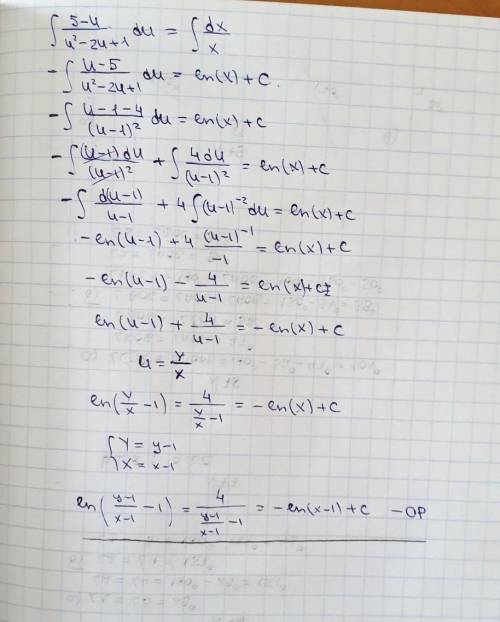 ∫ (5-u)/(u²-2u+1) du = ∫ dx/x
-∫ (u-5)/(u²-2u+1) du = en(x)+c.
-∫ (u-1-4)/(u-1)² du = en(x)+c
-∫ (u-1)du/(u-1)² + ∫ 4du/(u-1)² = en(x)+c
-∫ d(u-1)/(u-1) + 4∫(u-1)⁻² du = en(x)+c
-en(u-1) + 4 (u-1)⁻¹/(-1) = en(x)+c
-en(u-1) - 4/(u-1) = en(x)+c
en(u-1) + 4/(u-1) = -en(x)+c
u = Y/X
en(Y/X -1) = 4/(Y/X -1) = -en(x)+c
{ Y = y-1
X = x-1
en((y-1)/(x-1) -1) = 4/((y-1)/(x-1) -1) = -en(x-1)+c -OP